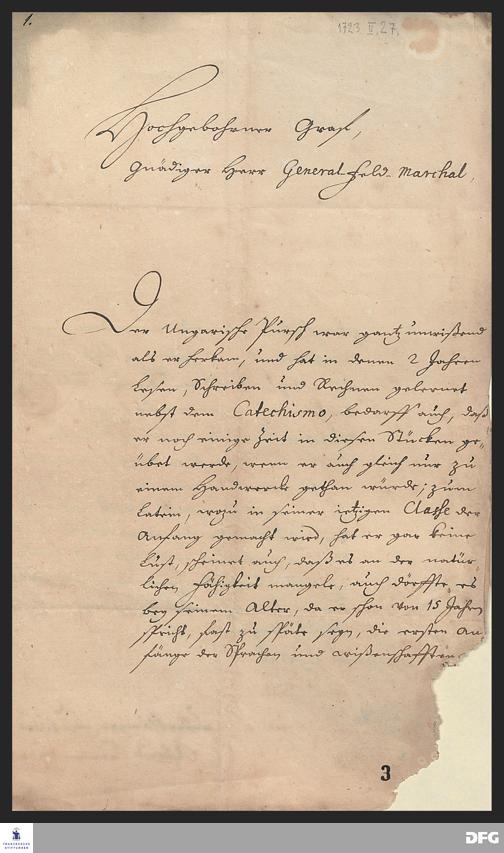 1.
1723 II, 27.
Hochgebohrner Graff,
Gnädiger Herr General-Feld-Marchal,
Der Ungarische Pursch war gantz unwißend
als er herkam, und hat in denen 2 Jahren
Lesen, Schreiben und Rechnen gelernet
nebst dem Catechismo, bedarff auch, daß
er noch einige Zeit in diesen Stücken ge-
übet werde, wenn er auch gleich nur zu
einem Handwercke gethan würde; zum
Latein, wozu in seiner ietzigen Classe der
Anfang gemacht wird, hat er gar keine
Lust, scheinet auch, daß es an der natür-
lichen Fähigkeit mangele, auch dörffte es
bey seinem Alter, da er schon von 15 Jahren
spricht, fast zu späte seyn, die ersten An-
fänge der Sprachen und wißenschafften
3
FRANCKESCHE
STIFTUNGEN
DFG